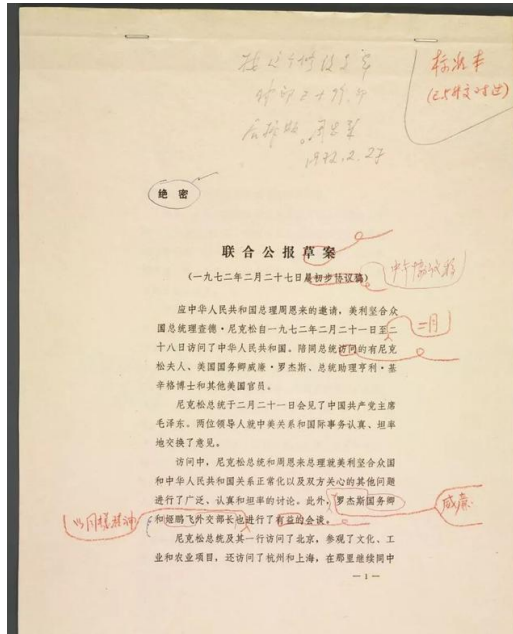 标准本
(已与外文对过)
1972.2.27
绝密
联合公报草案
(一九七二年二月二十七日晨初步协议稿)
二月
应中华人民共和国总理周恩来的邀请,美利坚合众
国总统理查德·尼克松自一九七二年二月二十一日至二
十八日访问了中华人民共和国。陪同总统访问的有尼克
松夫人、美国国务卿威廉·罗杰斯、总统助理亨利·基
辛格博士和其他美国官员。
尼克松总统于二月二十一日会见了中国共产党主席
毛泽东。两位领导人就中美关系和国际事务认真、坦率
地交换了意见。
访问中,尼克松总统和周恩来总理就美利坚合众国
和中华人民共和国关系正常化以及双方关心的其他问题
进行了广泛、认真和坦率的讨论。此外,罗杰斯国务卿
威廉
以同样精神
和姬鹏飞外交部长也进行了有益的会谈。
尼克松总统及其一行访问了北京,参观了文化、工
业和农业项目,还访问了杭州和上海,在那里继续同中
—1—